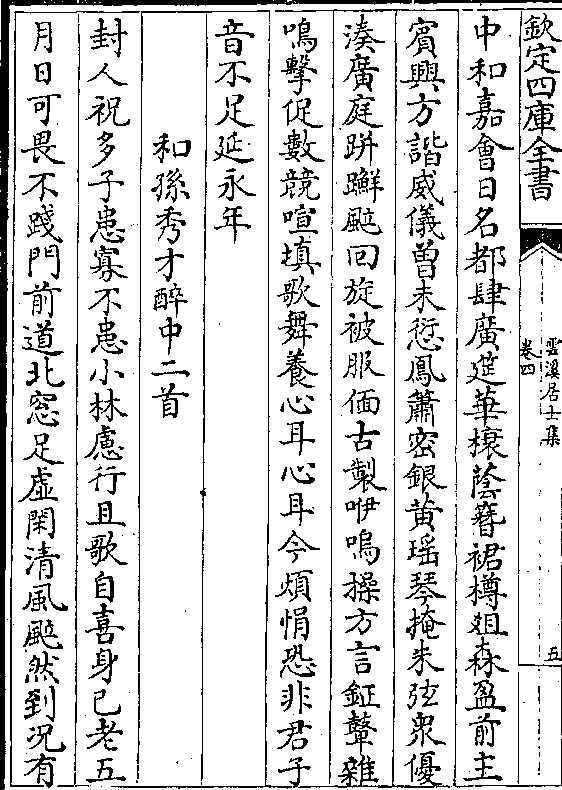 欽定四庫全書
雲溪居士集
卷四
五
中和嘉會日名都肆廣筵華榱蔭簪裾樽俎森盈前主
賓興方諧威儀曽未愆鳳簫宻銀黄瑶琴掩朱弦衆優
湊廣庭跰躚颭回旋被服偭古製咿嗚操方言鉦鼙雜
鳴擊促數競喧填歌舞養心耳心耳今煩悁恐非君子
音不足延永年
和孫秀才醉中二首
封人祝多子患寡不患小林慮行且歌自喜身已老五
月日可畏不踐門前道北窓足虚閑清風颼然到况有